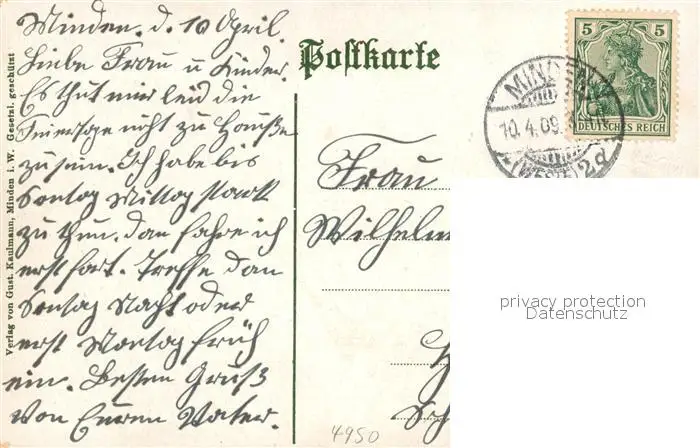 Verlag von Gust. Kaulmann, Minden i. W. Gesetzl. geschützt
Minden. d. 10 April.
Liebe Frau u Kinder.
Es thut mir leid die
Feiertage nicht zu Hauße
zu sein. Ich habe bis
Sontag Mittag stark
zu thun. dan fahre ich
erst fort. Treffe dan
Sontag Nacht oder
erst Montag früh
ein. Besten Gruß
von Eurem Vater.
4950
Postkarte
5 5
DEUTSCHES REICH
MINDEN
10.4.09.
(WESTF) 2d
Frau
Wilhelm
privacy protection
Datenschutz